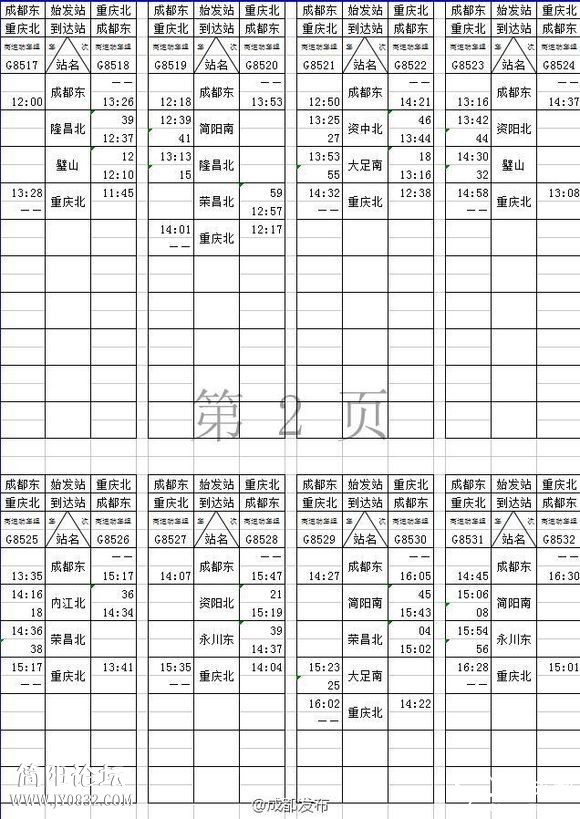 成都东 始发站 重庆北
重庆北 到达站 成都东
车 次
G8517 站名 G8518
成都东 ——
12:00 13:26
隆昌北 39
12:37
璧山 12
12:10
13:28 重庆北 11:45
——
成都东 始发站 重庆北
重庆北 到达站 成都东
车 次
G8519 站名 G8520
成都东 ——
12:18 13:53
12:39 简阳南
41
13:13 隆昌北
15
荣昌北 59
12:57
14:01 重庆北 12:17
——
成都东 始发站 重庆北
重庆北 到达站 成都东
车 次
G8521 站名 G8522
成都东 ——
12:50 14:21
13:25 资中北 46
27 13:44
13:53 大足南 18
55 13:16
14:32 重庆北 12:38
——
成都东 始发站 重庆北
重庆北 到达站 成都东
车 次
G8523 站名 G8524
成都东 ——
13:16 14:37
13:42 资阳北
44
14:30 璧山
32
14:58 重庆北 13:08
——
第 2 页
成都东 始发站 重庆北
重庆北 到达站 成都东
车 次
G8525 站名 G8526
成都东 ——
13:35 15:17
14:16 内江北 36
18 14:34
14:36 荣昌北
38
15:17 重庆北 13:41
——
成都东 始发站 重庆北
重庆北 到达站 成都东
车 次
G8527 站名 G8528
成都东 ——
14:07 15:47
资阳北 21
15:19
永川东 39
14:37
15:35 重庆北 14:04
——
成都东 始发站 重庆北
重庆北 到达站 成都东
车 次
G8529 站名 G8530
成都东 ——
14:27 16:05
简阳南 45
15:43
荣昌北 04
15:02
15:23 大足南
25
16:02 重庆北 14:22
——
成都东 始发站 重庆北
重庆北 到达站 成都东
车 次
G8531 站名 G8532
成都东 ——
14:45 16:30
15:06 简阳南
08
15:54 永川东
56
16:28 重庆北 15:01
——
简阳论坛
www.JY0832.com
@成都发布